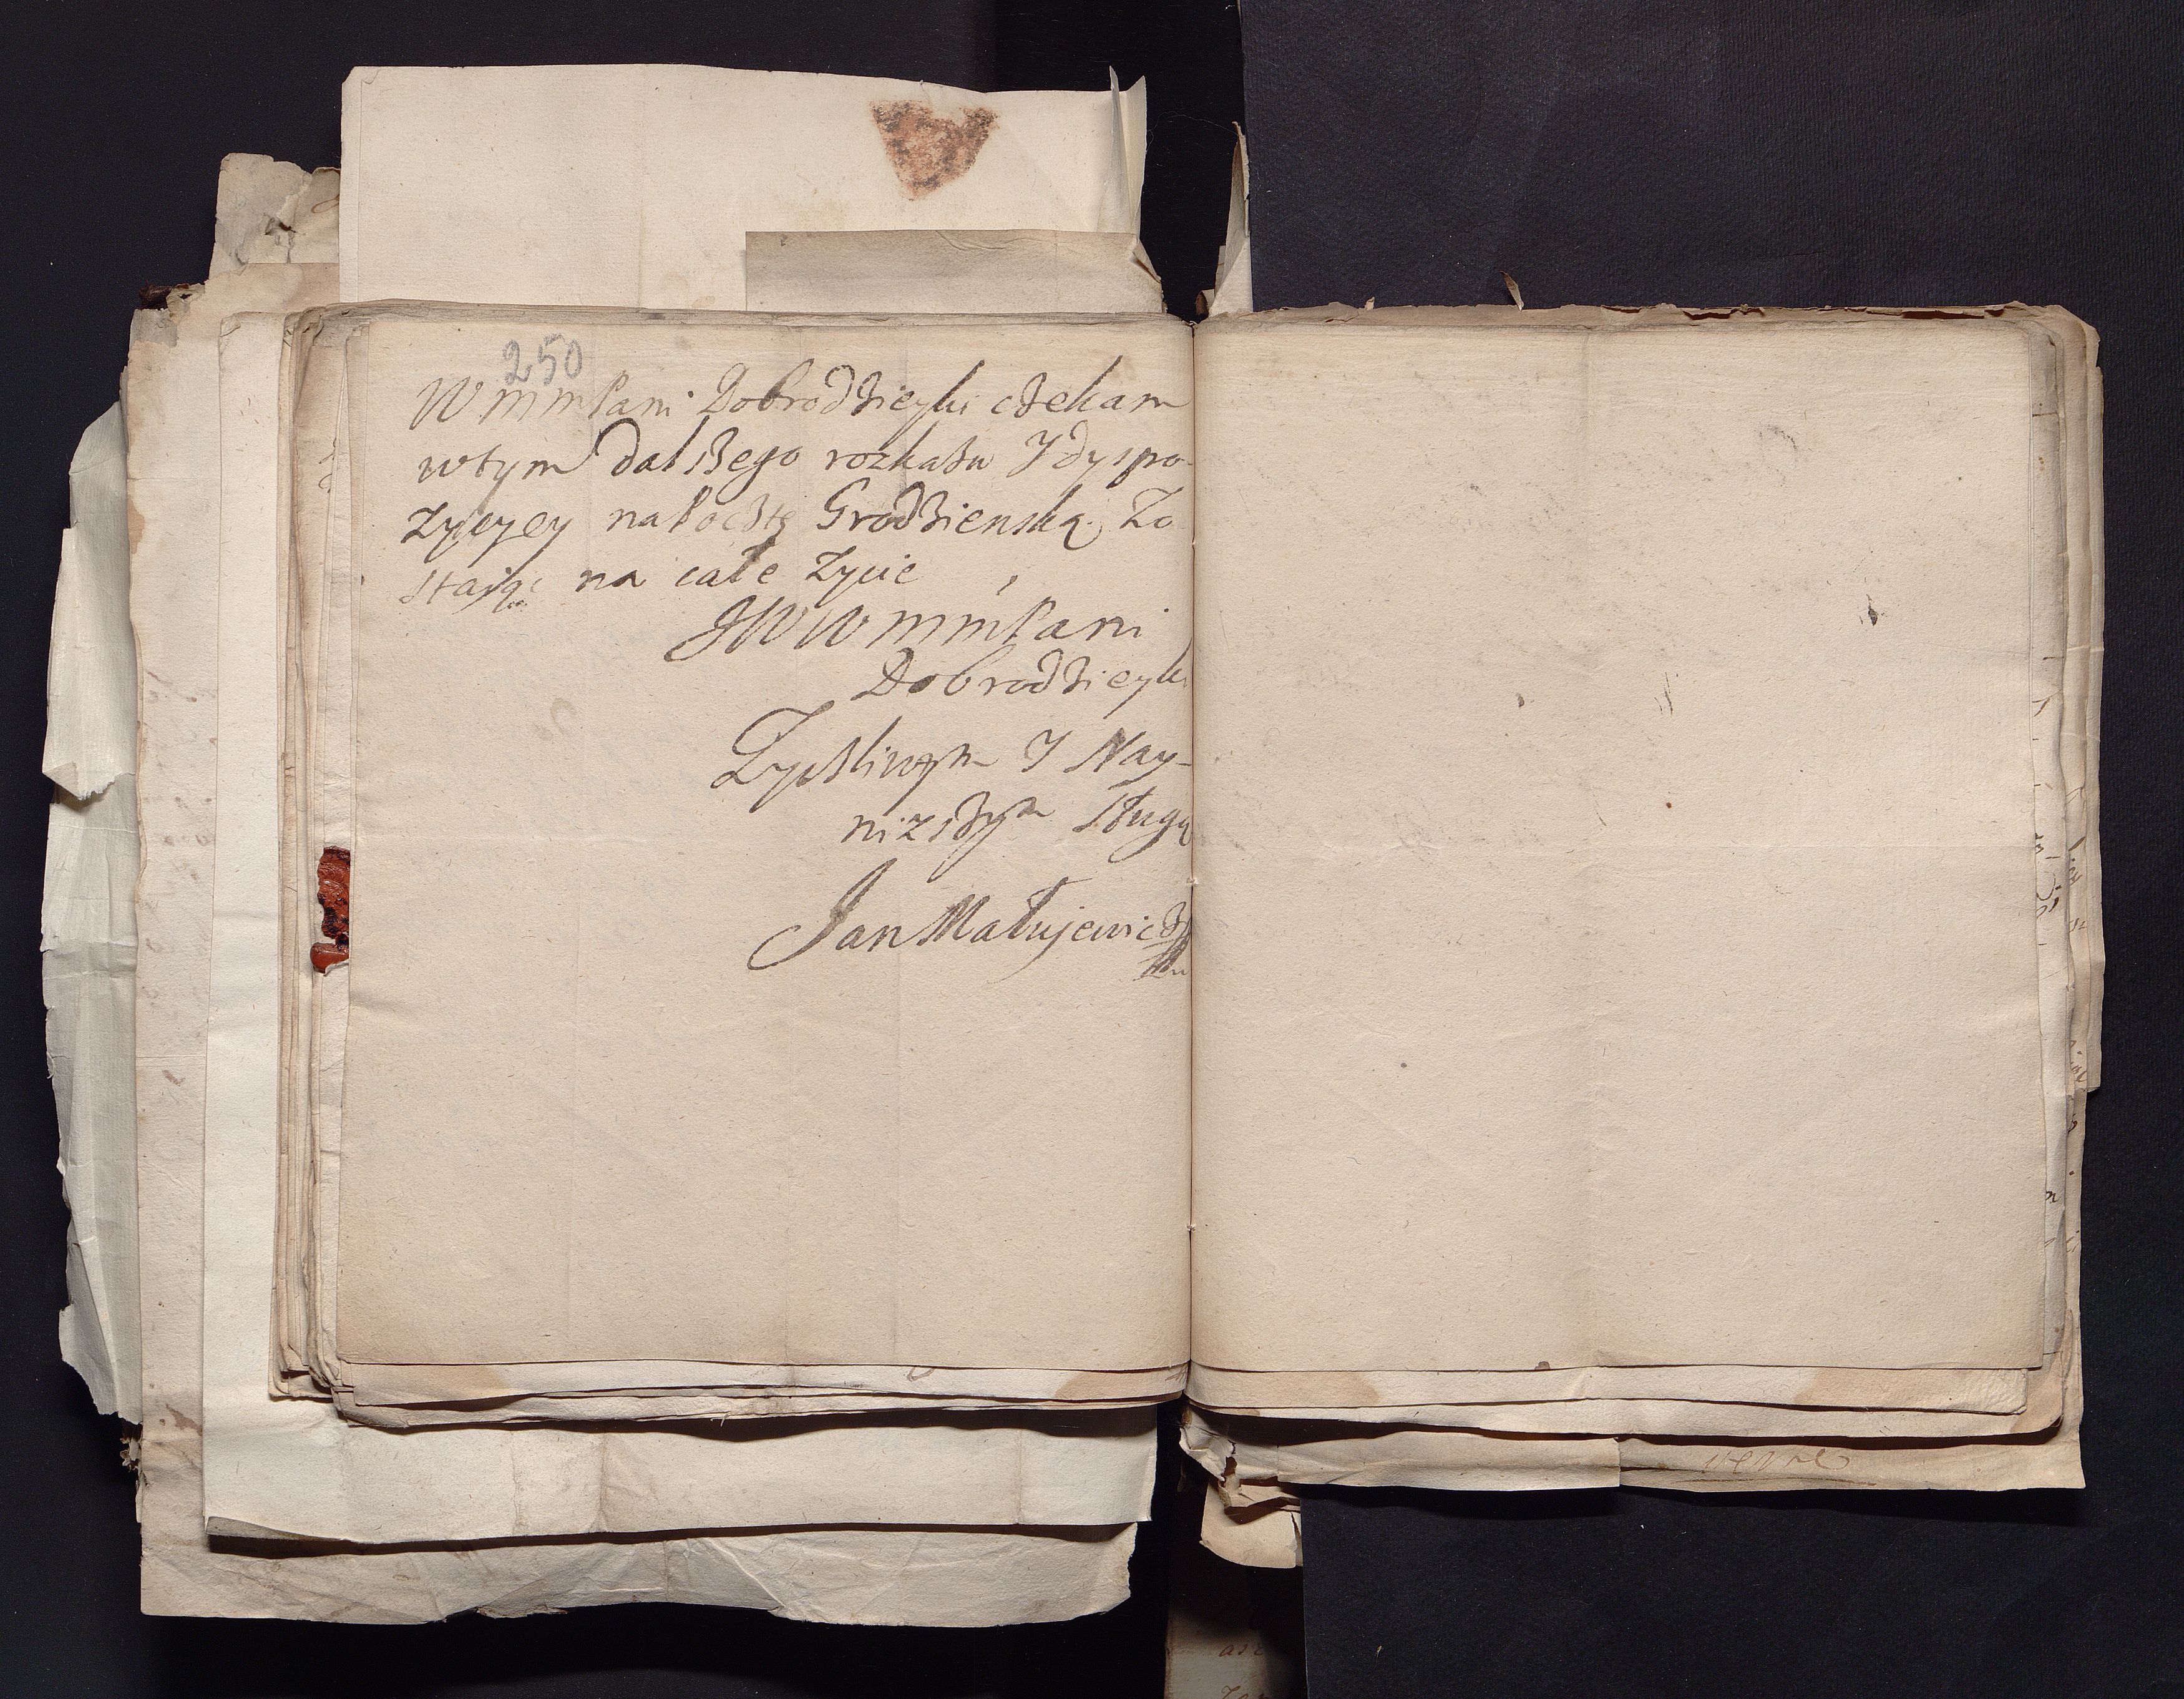 250
WmmPani Dobrodzieyki czekam
wtym dalszego rozkazu Y dyspo-
zycyey na Pocztę Grodzienską. Zo
staiąc na całe Zycie
JWWmmPani
Dobrodzieyki
Zyczliwym Y Nay-
nizszym Sługą
Jan Małujewicz